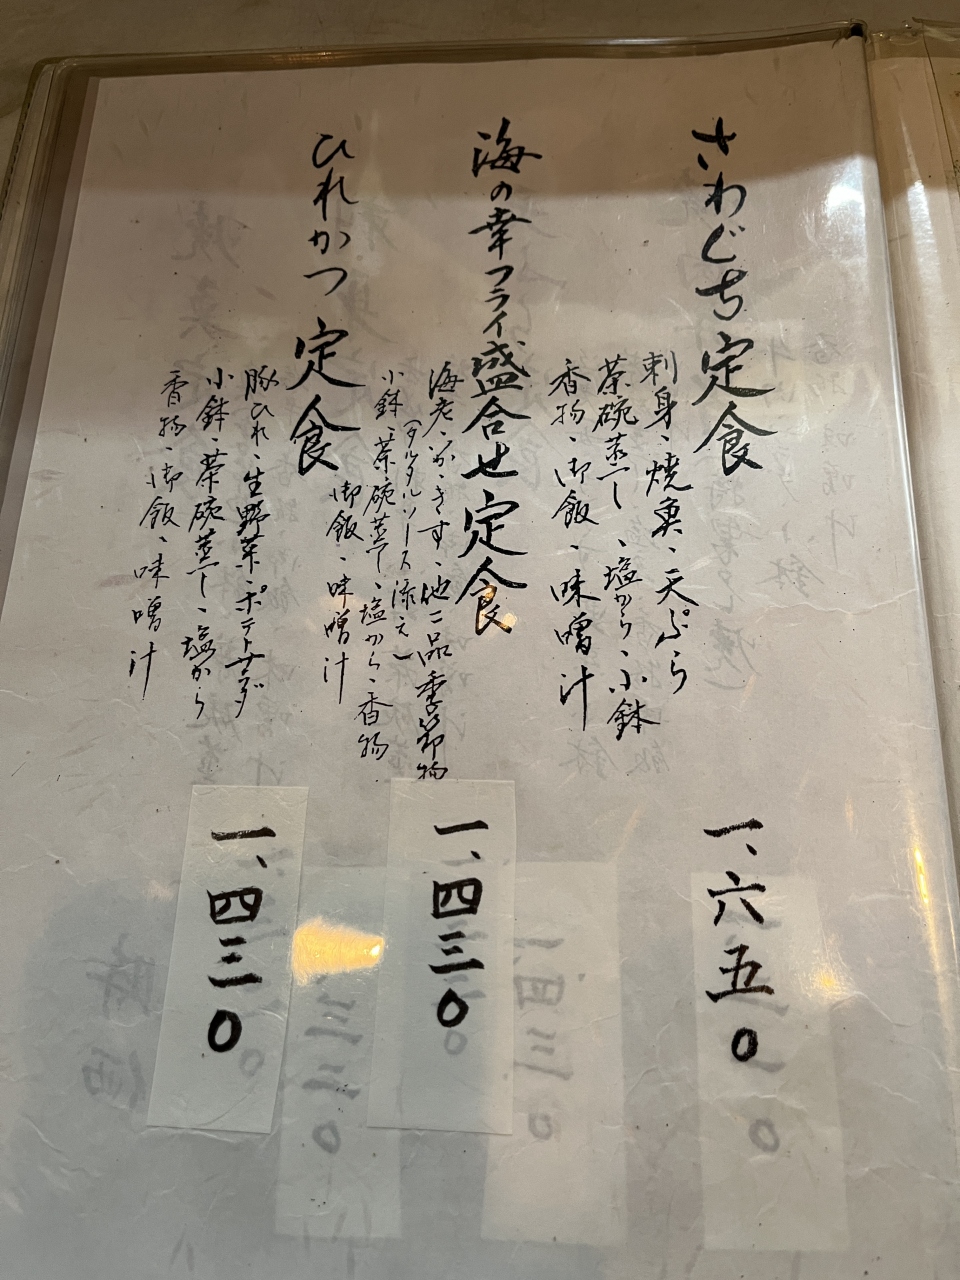 さわぐち定食
刺身、焼魚、天ぷら
茶碗蒸し、塩から、小鉢
香物、御飯、味噌汁
一、六五〇
海の幸フライ盛合せ定食
海老、いか、きす、他二品季節物
(タルタルソース添え)
小鉢、茶碗蒸し、塩から、香物
御飯、味噌汁
一、四三〇
ひれかつ定食
豚ひれ、生野菜、ポテトサラダ
小鉢、茶碗蒸し、塩から
香物、御飯、味噌汁
一、四三〇